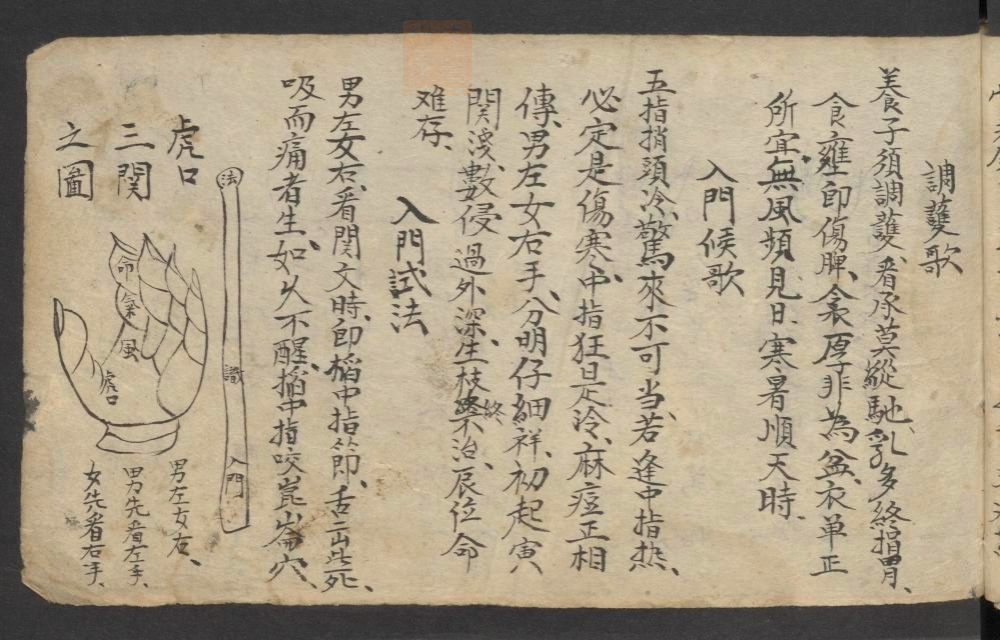 調護歌
養子須調護、看承莫縱馳、乳多終損胃、
食雍即傷脾、衾厚非為益、衣单正
所宜、無風頻見日、寒暑順天時、
入門候歌
五指捎頭冷、驚來不可当、若逢中指热、
必定是傷寒、中指狂是冷、麻痘正相
傳、男左女右手、分明仔細祥、初起寅
関浅、數侵過外深、生枝終不治、辰位命
难存、
入門試法
男左女右、看関文時、即稻中指節、舌出些死、
吸而痛者生、如久不醒、搯中指咬崑崙穴、
法
識
入門
虎口
三関
之圖
命
氣
風
虎口
男左女右、
男先看左手、
女先看右手、